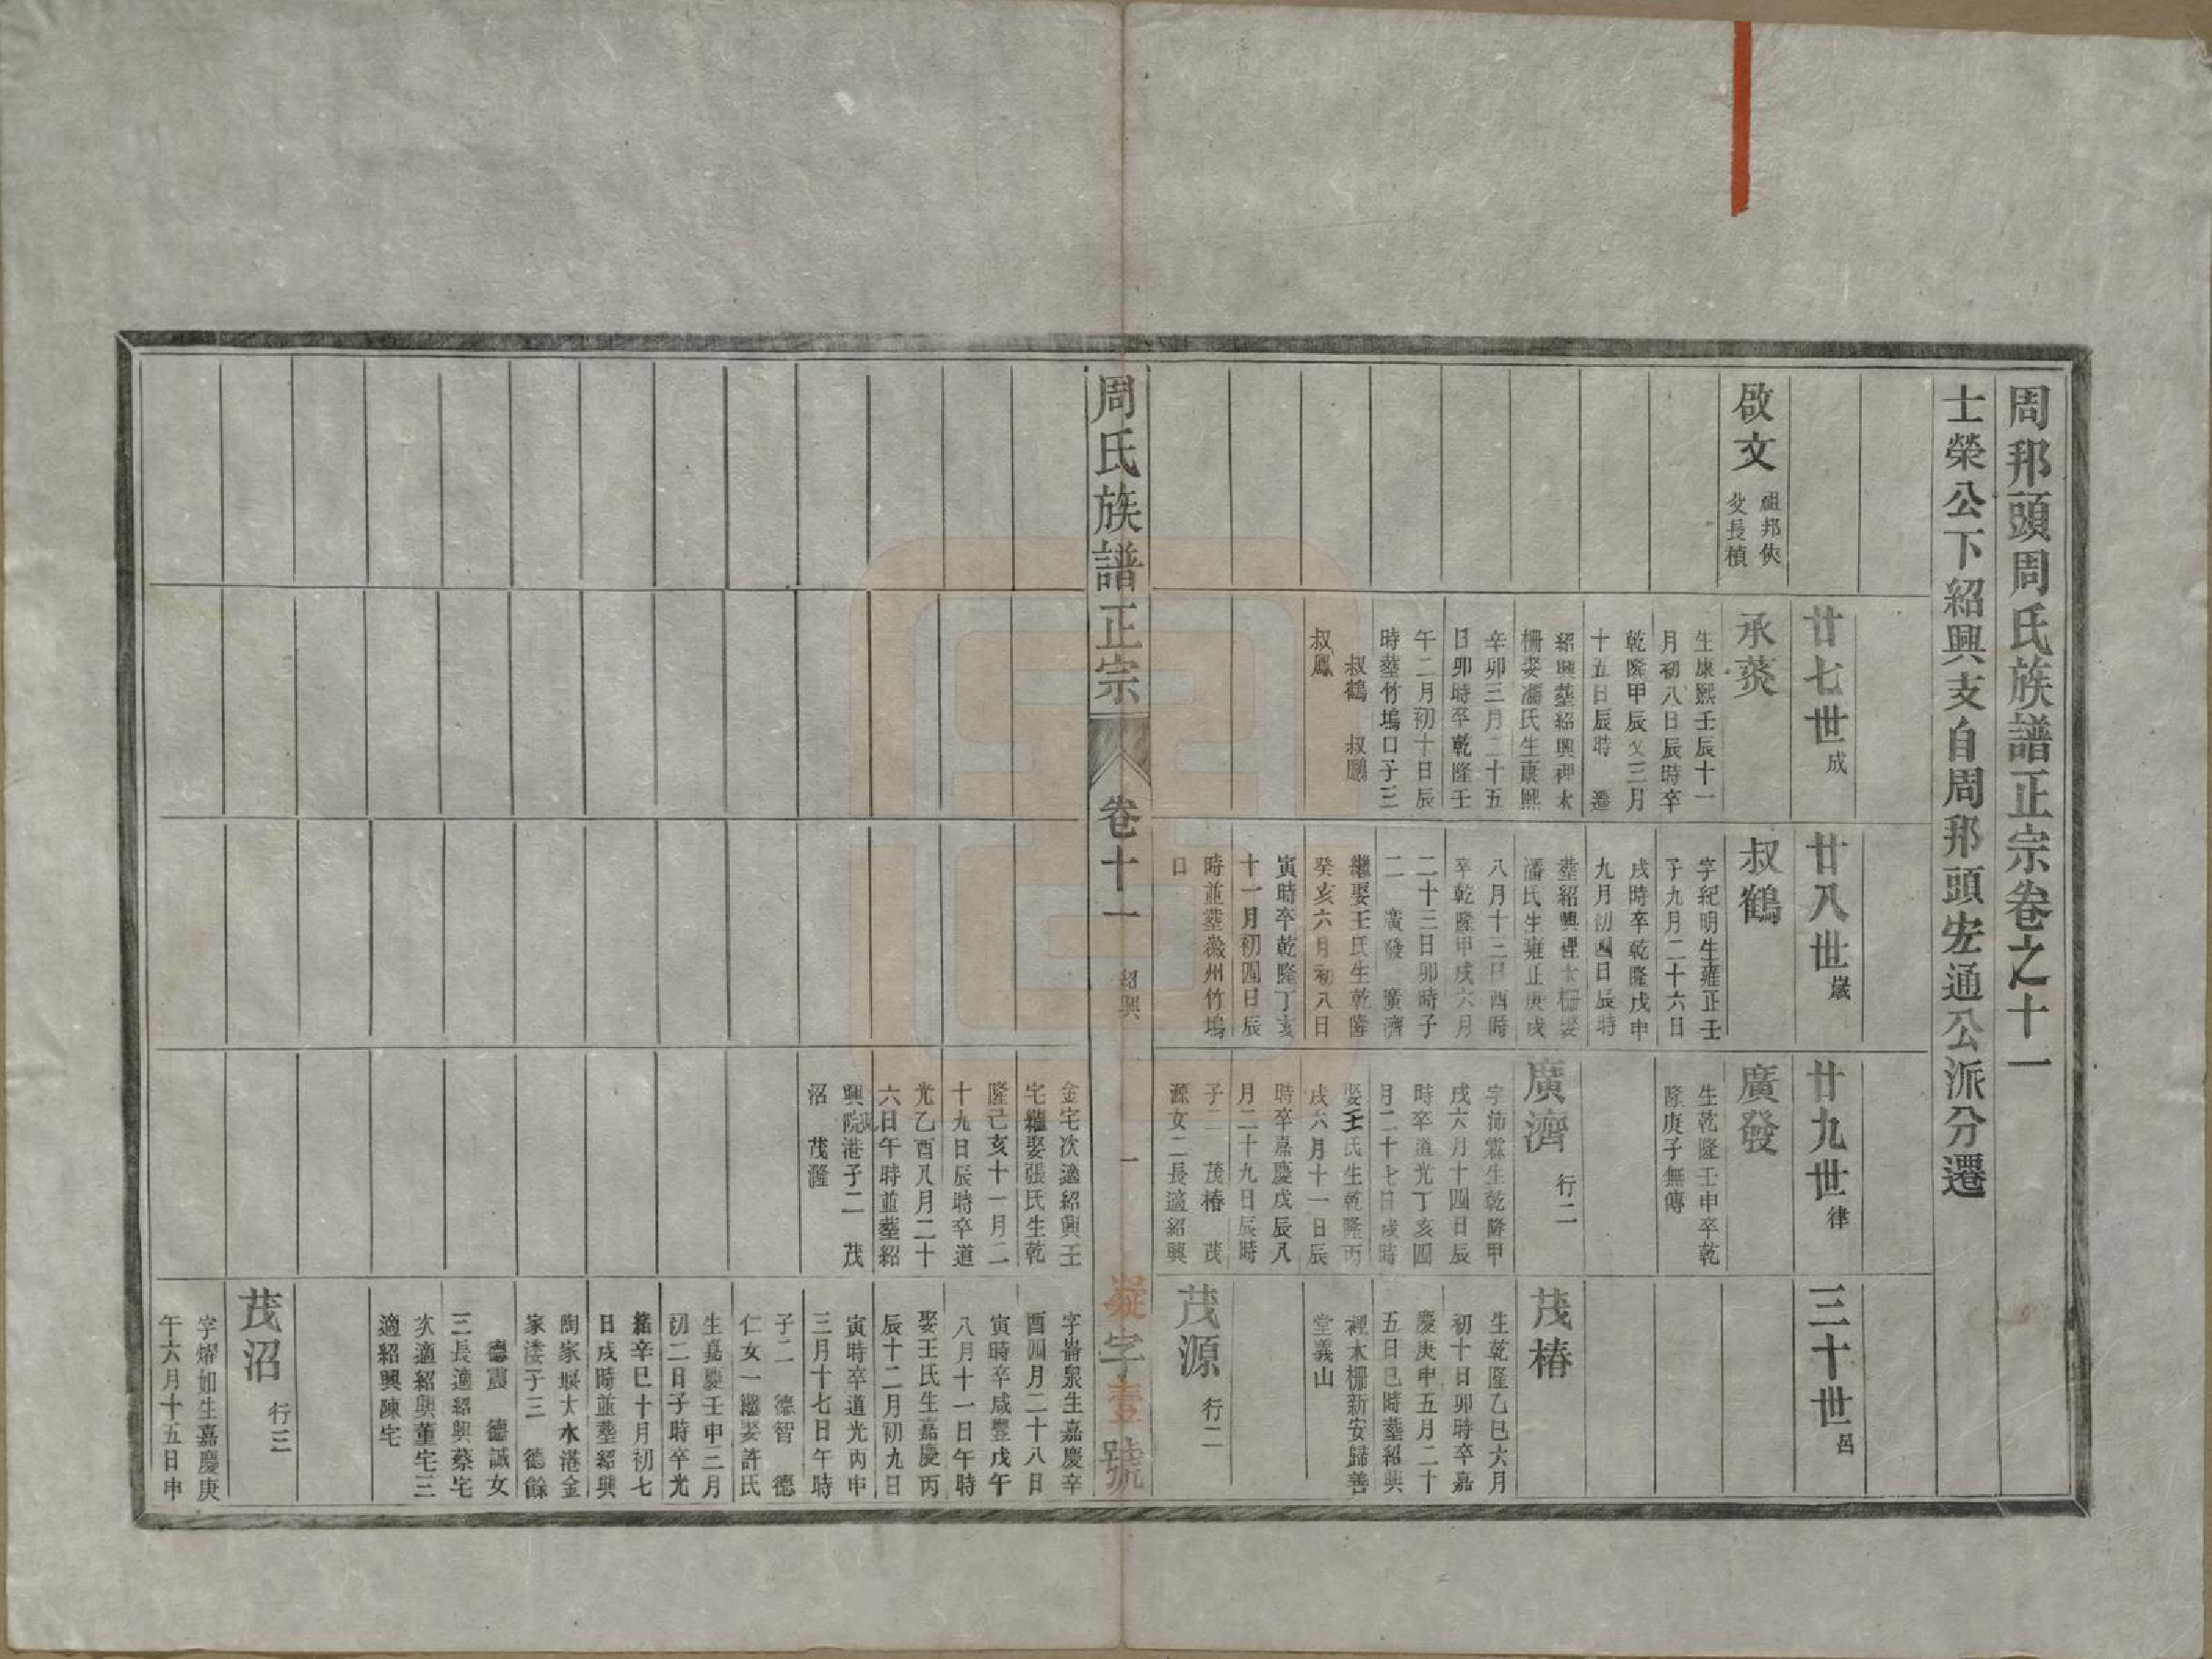 周邦頭周氏族譜正宗卷之十一
士榮公下紹興支自周邦頭宏通公派分遷
啟文
祖邦俠
父長楨
廿七世成
承菼
生康熙壬辰十一
月初八日辰時卒
乾隆甲辰又三月
十五日辰時 遷
紹興塟紹興裡木
柵娶潘氏生康熙
辛卯三月二十五
日卯時卒乾隆壬
午二月初十日辰
時塟竹塢口子三
叔鶴 叔鵬
叔鳳
廿八世歲
叔鶴
字紀明生雍正壬
子九月二十六日
戌時卒乾隆戊申
九月初四日辰時
塟紹興裡木柵娶
潘氏生雍正庚戌
八月十三日酉時
卒乾隆甲戌六月
二十三日卯時子
二 廣發 廣濟
繼娶王氏生乾隆
癸亥六月初八日
寅時卒乾隆丁亥
十一月初四日辰
時並塟徽州竹塢
口
廿九世律
廣發
生乾隆壬申卒乾
隆庚子無傳
廣濟 行二
字沛霖生乾隆甲
戌六月十四日辰
時卒道光丁亥四
月二十七日戌時
娶王氏生乾隆丙
戌六月十一日辰
時卒嘉慶戊辰八
月二十九日辰時
子二 茂椿 茂
源女二長適紹興
三十世呂
茂椿
生乾隆乙巳六月
初十日卯時卒嘉
慶庚申五月二十
五日巳時塟紹興
裡木柵新安歸善
堂義山
茂源 行二
周氏族譜正宗
卷十一
紹興
一
凝字壹號
金宅次適紹興王
宅繼娶張氏生乾
隆己亥十一月二
十九日辰時卒道
光乙酉八月二十
六日午時並塟紹
興院港子二 茂
沼 茂瀣
字崙泉生嘉慶辛
酉四月二十八日
寅時卒咸豐戊午
八月十一日午時
娶王氏生嘉慶丙
辰十二月初九日
寅時卒道光丙申
三月十七日午時
子二 德智 德
仁女一繼娶許氏
生嘉慶壬申三月
初二日子時卒光
緒辛巳十月初七
日戌時並塟紹興
陶家堰大水港金
家漊子三 德餘
德震 德誠女
三長適紹興蔡宅
次適紹興董宅三
適紹興陳宅
茂沼 行三
字燿如生嘉慶庚
午六月十五日申